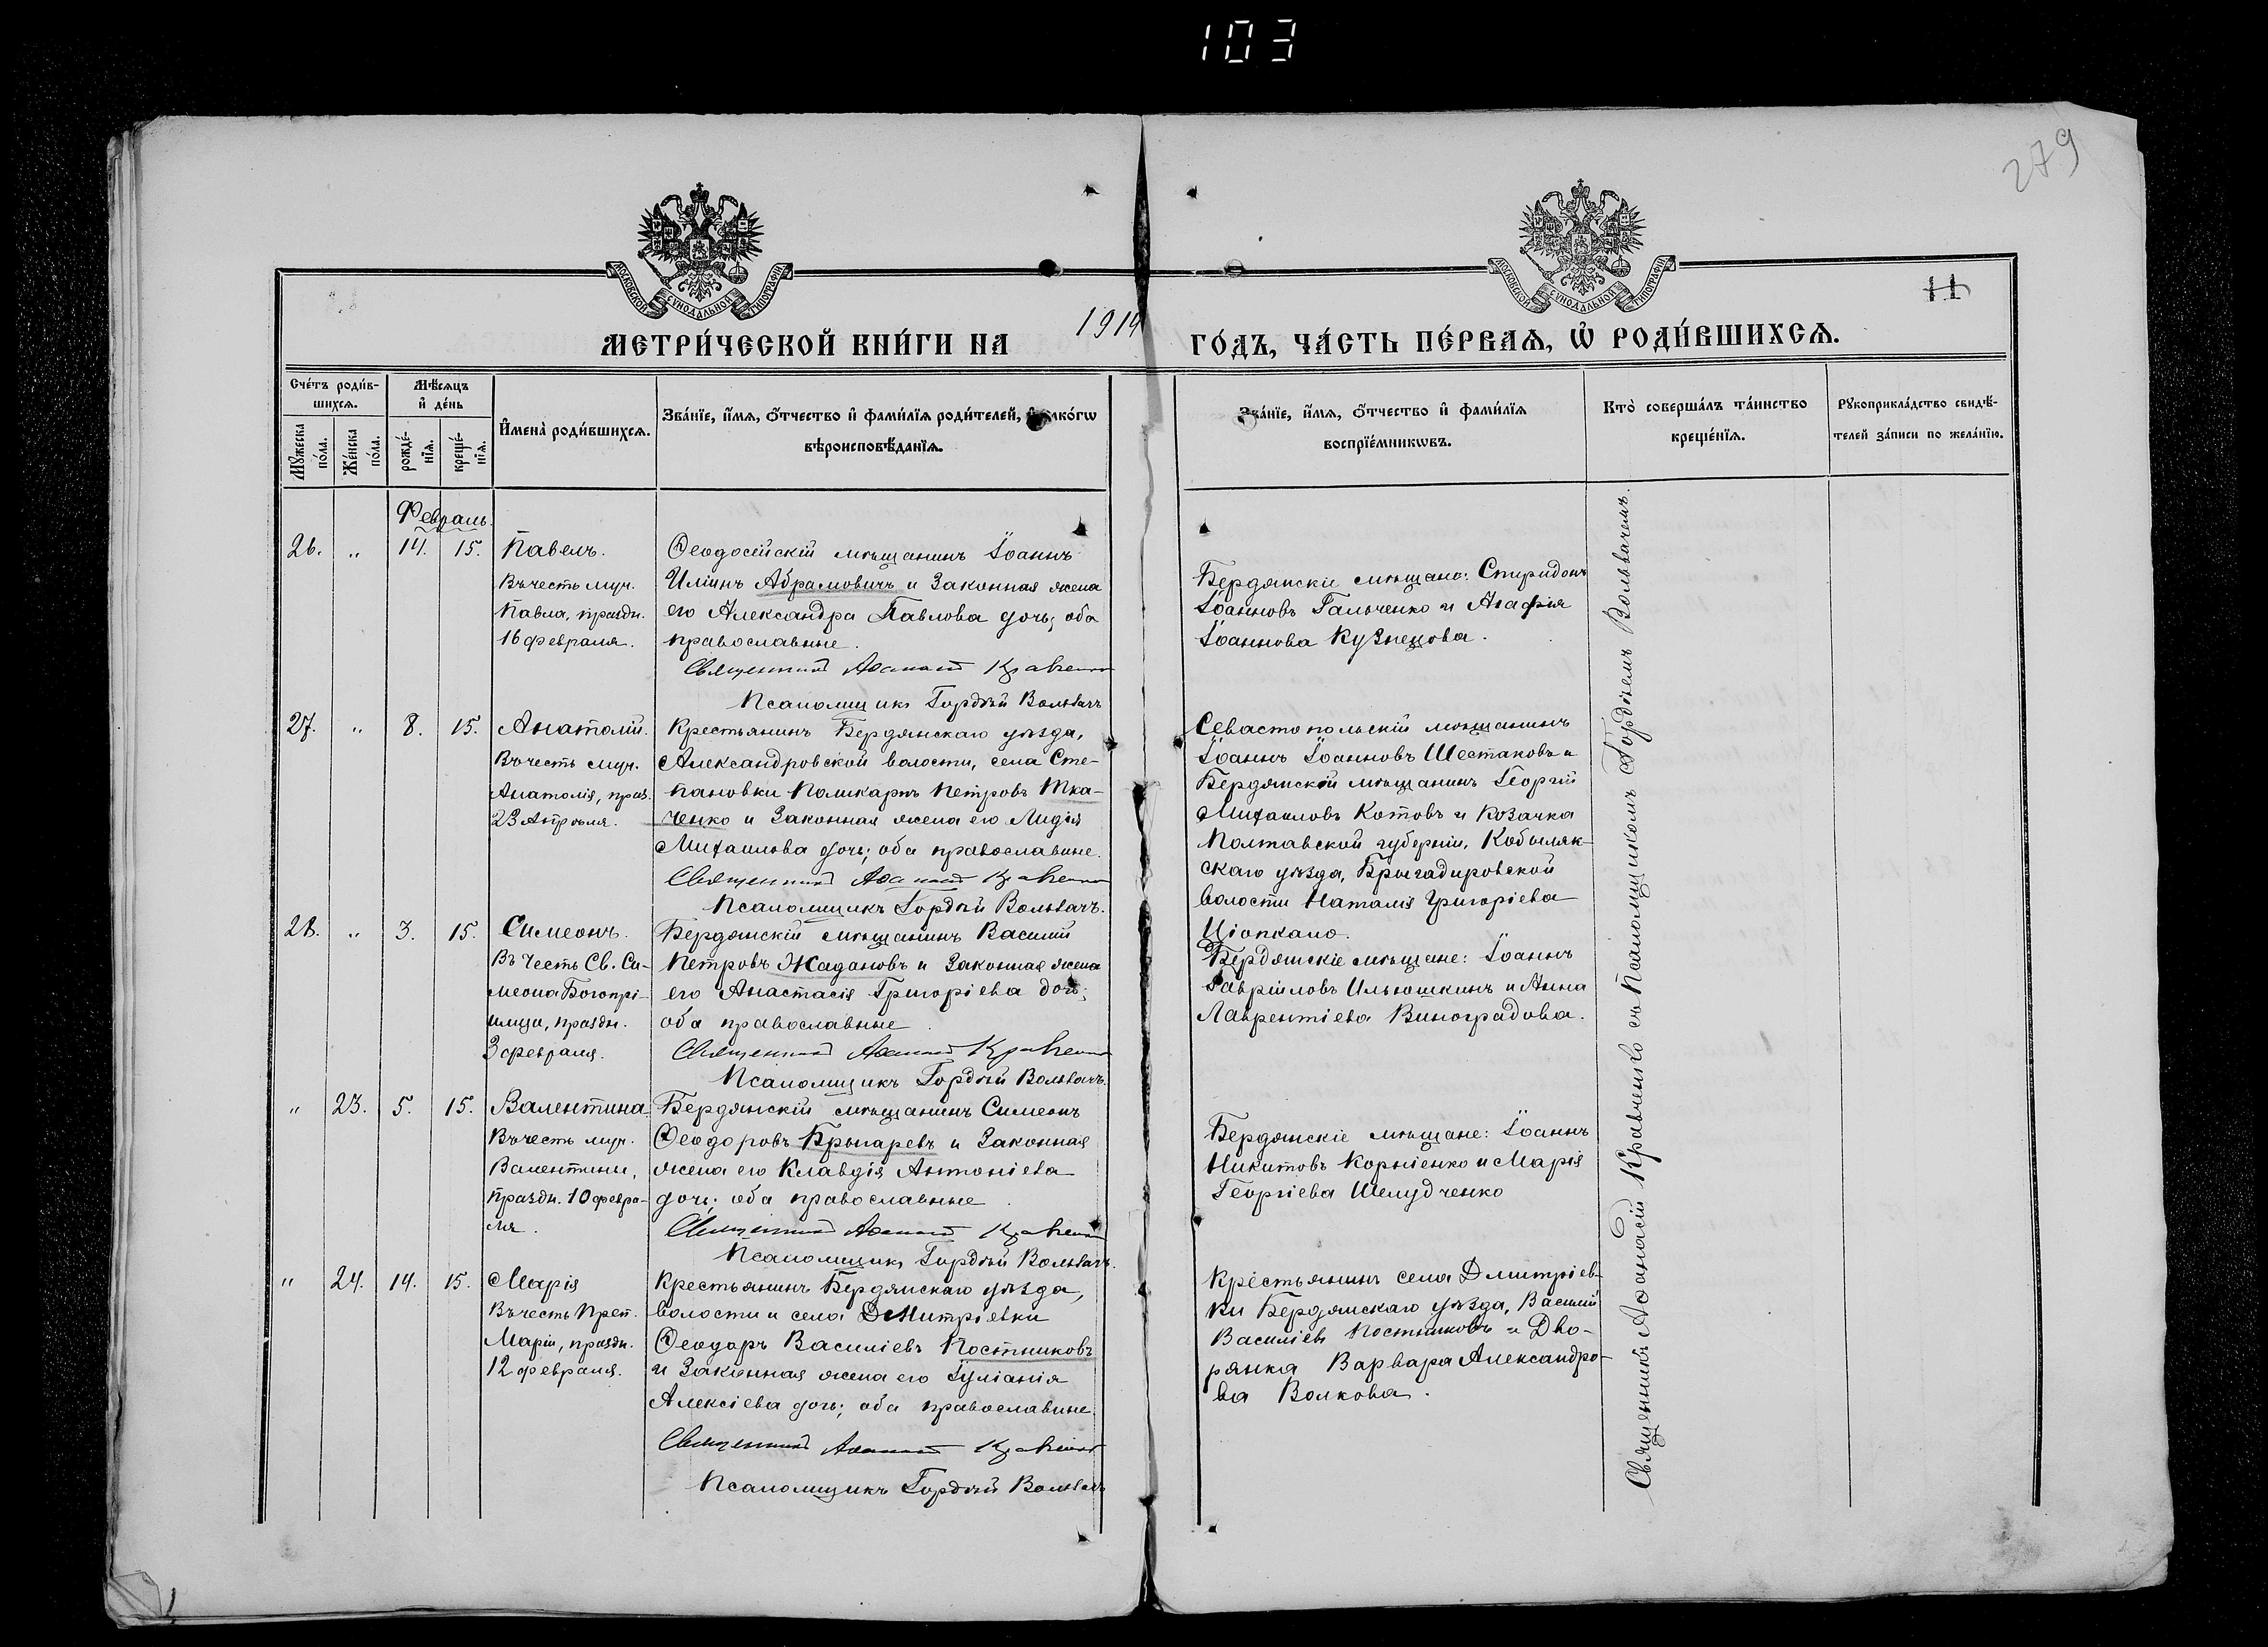 103
279
МОСКОВСКОЙ СУНОДАЛЬНОЙ ТИПОГРАФІИ
МОСКОВСКОЙ СУНОДАЛЬНОЙ ТИПОГРАФІИ
11
МЕТРИ́ЧЕСКОЙ КНИ́ГИ НА 1914 ГО́ДЪ, ЧА́СТЬ ПЕ́РВАѦ, Ѡ҆ РОДИ́ВШИХСѦ.
Сче́тъ роди́в-
шихсѧ.
Мꙋ́жеска по́ла.
Же́нска по́ла.
Мѣ́сѧцъ
и҆ де́нь
рожде́-
нїѧ.
креще́-
нїѧ.
И҆мена̀ роди́вшихсѧ.
Зва́нїе, и҆́мѧ, ѻ҆́тчество и҆ фами́лїѧ роди́телей, и҆ како́гѡ
вѣроисповѣ́данїѧ.
Зва́нїе, и҆́мѧ, ѻ҆́тчество и҆ фами́лїѧ
воспрїе́мникѡвъ.
Кто̀ соверша́лъ та́инство
креще́нїѧ.
Рꙋкоприкла́дство свидѣ́-
телей за́писи по жела́нїю.
Февраль.
26. „ 14. 15. Павелъ.
Въ честь муч.
Павла, праздн.
16 февраля.
Ѳеодосійскій мѣщанинъ Іоаннъ
Иліинъ Абрамовичъ и законная жена
его Александра Павлова дочь; оба
православные.
Священникъ Аѳанасій Кравченко
Псаломщикъ Гордѣй Вольвачъ
Бердянскіе мѣщане: Спиридонъ
Іоанновъ Гальченко и Агафія
Іоаннова Кузнецова.
27. „ 8. 15. Анатолій.
Въ честь муч.
Анатолія, праз.
23 Апрѣля.
Крестьянинъ Бердянскаго уѣзда,
Александровской волости, села Сте-
пановки Поликарпъ Петровъ Тка-
ченко и законная жена его Лидія
Михаилова дочь; оба православные.
Священникъ Аѳанасій Кравченко
Псаломщикъ Гордѣй Вольвачъ.
Севастопольскій мѣщанинъ
Іоаннъ Іоанновъ Шестаковъ и
Бердянскій мѣщанинъ Георгій
Михаиловъ Котовъ и козачка
Полтавской губерніи, Кобыляк-
скаго уѣзда, Бригадировской
волости Наталія Григоріева
Ціопкало.
28. „ 3. 15. Симеонъ.
Въ честь Св. Си-
меона Богопрі-
имца, праздн.
3 февраля.
Бердянскій мѣщанинъ Василій
Петровъ Жадановъ и законная жена
его Анастасія Григоріева дочь;
оба православные.
Священникъ Аѳанасій Кравченко
Псаломщикъ Гордѣй Вольвачъ.
Бердянскіе мѣщане: Іоаннъ
Гавріиловъ Ильюшкинъ и Анна
Лаврентіева Виноградова.
„ 23. 5. 15. Валентина.
Въ честь муч.
Валентины,
праздн. 10 февра-
ля.
Бердянскій мѣщанинъ Симеонъ
Ѳеодоровъ Крыгаревъ и законная
жена его Клавдія Антоніева
дочь; оба православные.
Священникъ Аѳанасій Кравченко
Псаломщикъ Гордѣй Вольвачъ.
Бердянскіе мѣщане: Іоаннъ
Никитовъ Корніенко и Марія
Георгіева Шелудченко
„ 24. 14. 15. Марія
Въ честь Преп.
Маріи, праздн.
12 февраля.
Крестьянинъ Бердянскаго уѣзда,
волости и села Дмитріевки
Ѳеодоръ Василіевъ Постниковъ
и законная жена его Іуліанія
Алексіева дочь; оба православные.
Священникъ Аѳанасій Кравченко
Псаломщикъ Гордѣй Вольвачъ
Крестьянинъ села Дмитріев-
ки Бердянскаго уѣзда, Василій
Василіевъ Постниковъ и Дво-
рянка Варвара Александро-
ва Волкова.
Священникъ Аѳанасій Кравченко съ Псаломщикомъ Гордѣемъ Вольвачемъ.